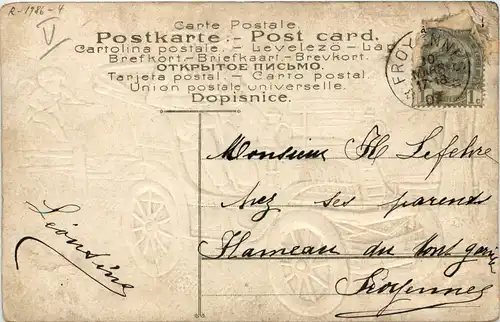 R-1986-4
V
Carte Postale.
Postkarte.-Post card.
Cartolina postale.-Levelezö-Lap
Brefkort.-Briefkaart.-Brevkort.
ОТКРЫТОЕ ПИСЬМО.
Tarjeta postal.-Carto postal.
Union postale universelle.
Dopisnice.
FROYENNES
10
MARS
17-18
07
1 c
Monsieur H Lefebre
chez ses parents
Hameau du Mont
Froyennes
Léontine